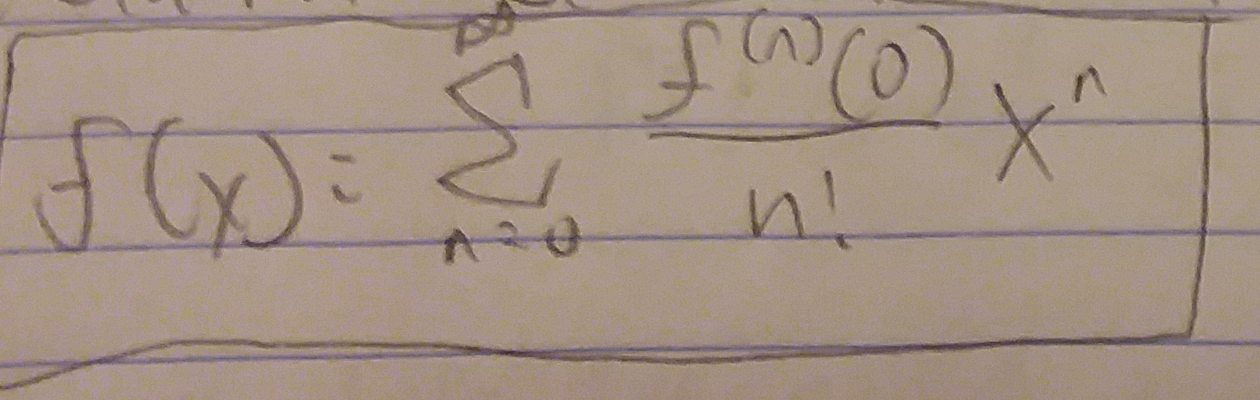 f(x) = ∞ Σ n=0 f^(n)(0) / n! x^n